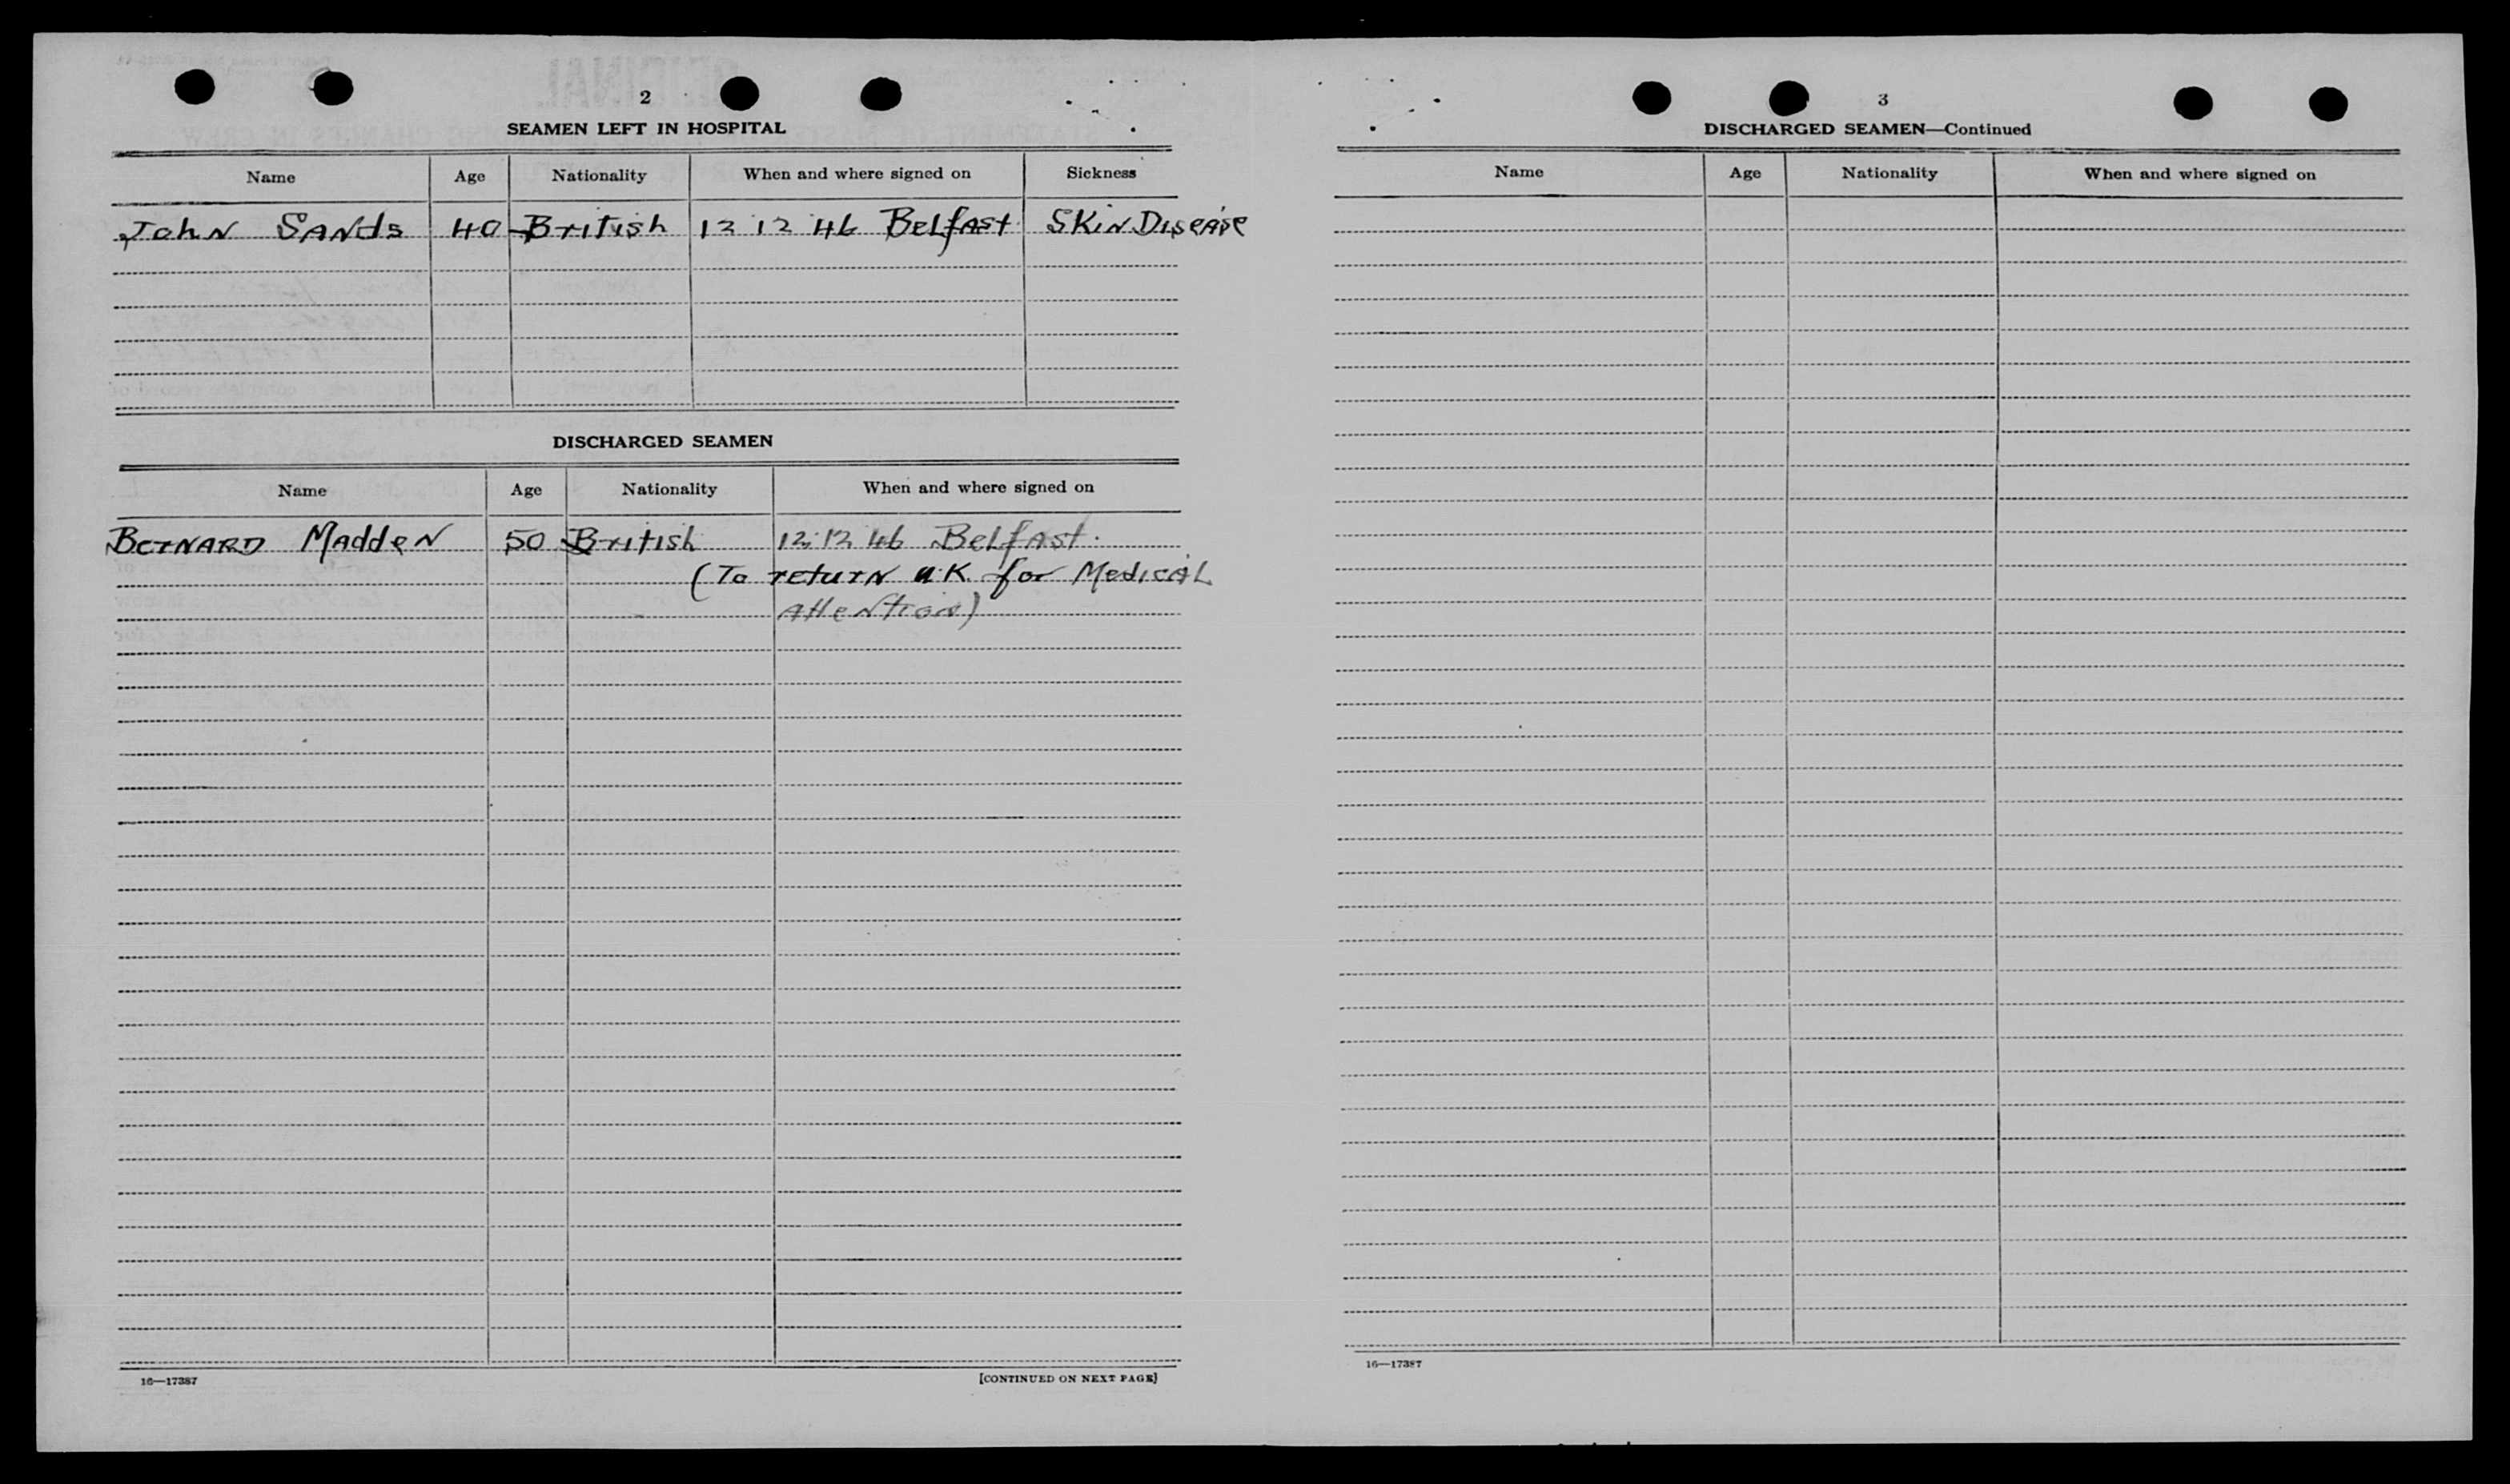 2
SEAMEN LEFT IN HOSPITAL
Name Age Nationality When and where signed on Sickness
John Sands 40 British 12 12 46 Belfast Skin Disease
DISCHARGED SEAMEN
Name Age Nationality When and where signed on
Bernard Madden 50 British 12 12 46 Belfast.
(To return U.K. for Medical
Attention)
16—17387
[CONTINUED ON NEXT PAGE]
3
DISCHARGED SEAMEN—Continued
Name Age Nationality When and where signed on
16—17387